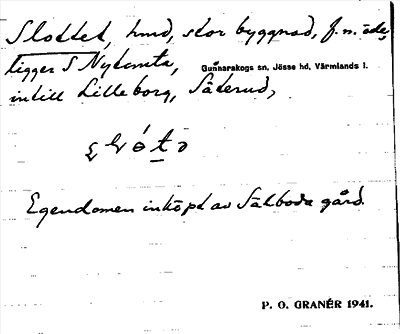 Slottet, hmd, stor byggnad, f.n. öde,
ligger S Nytomta, Gunnarskogs sn, Jösse hd, Värmlands l.
intill Lilleborg, Säterud,
Egendomen inköpt av Sälboda gård.
P. O. GRANÉR 1941.